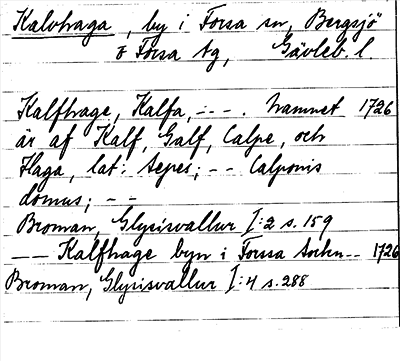 Kalvhaga, by i Forsa sn, Bergsjö
o Forsa tg, Gävleb. l,
Kalfhage, Kalfa, -:- - . Namnet 1726
är af Kalf, Galf, Calpe, och
Haga, lat: sepes; - - Calponis
domus; - -
Broman, Glysisvallur I:2 s. 159
- - Kalfhage byn i Forssa Sochn - - 1726
Broman, Glysisvallur I:4 s. 288